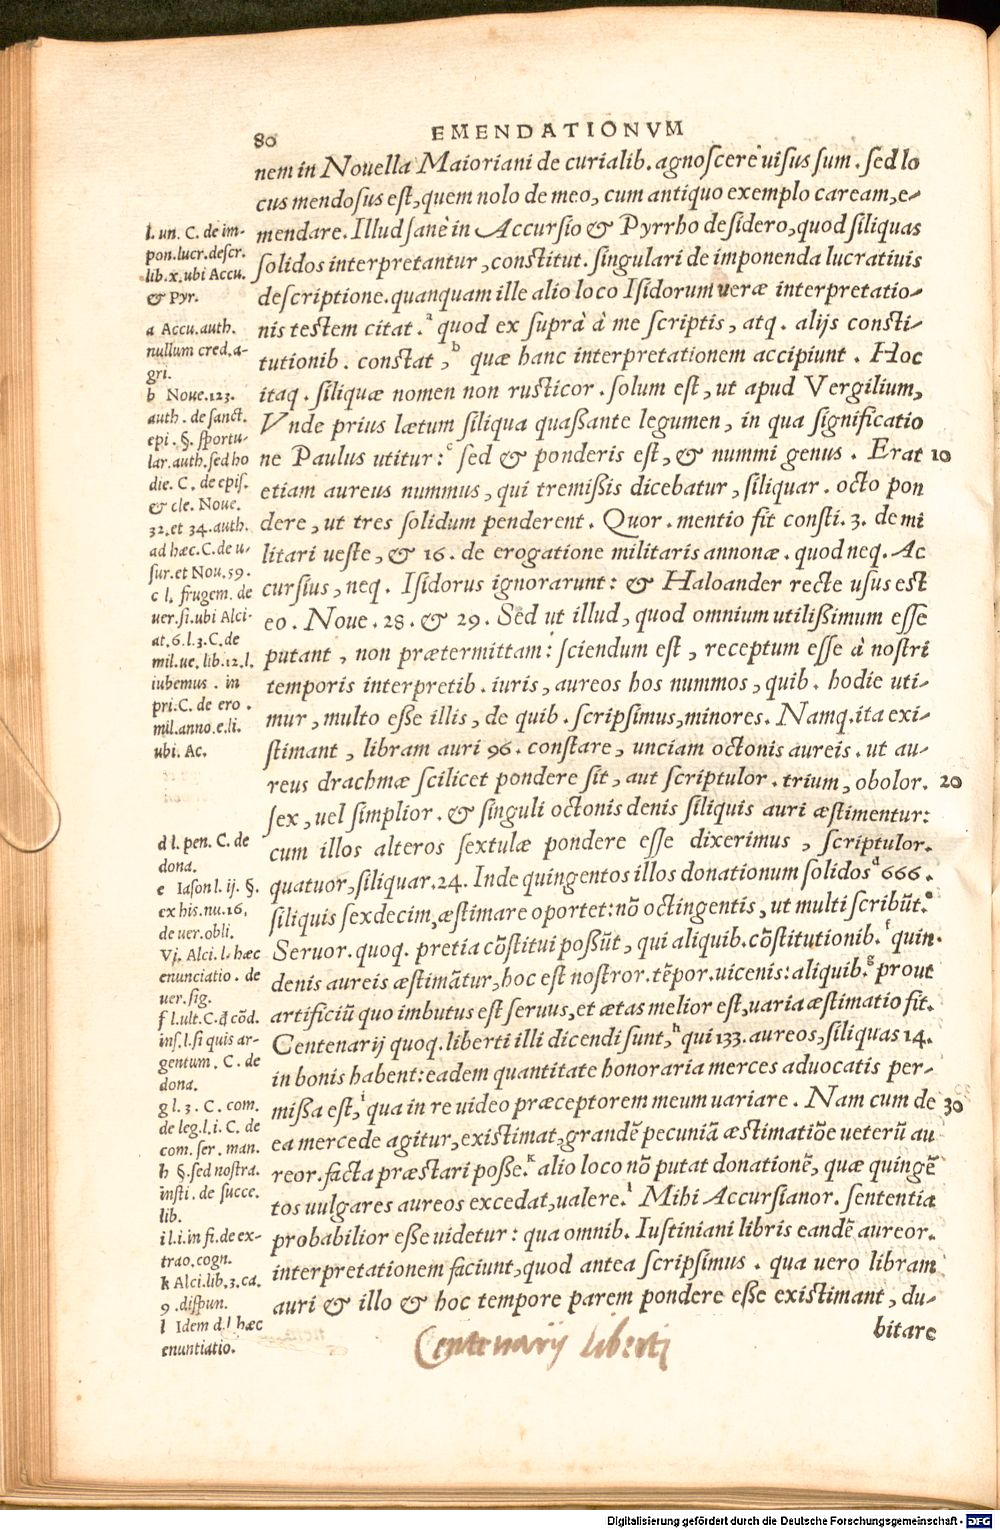 80
EMENDATIONVM
nem in Nouella Maioriani de curialib. agnoscere uisus sum. sed lo
cus mendosus est, quem nolo de meo, cum antiquo exemplo caream, e-
mendare. Illud sanè in Accursio & Pyrrho desidero, quod siliquas
solidos interpretantur, constitut. singulari de imponenda lucratiuis
descriptione. quanquam ille alio loco Isidorum ueræ interpretatio-
nis testem citat.ᵃ quod ex suprà à me scriptis, atq. alijs consti-
tutionib. constat,ᵇ quæ hanc interpretationem accipiunt. Hoc
itaq. siliquæ nomen non rusticor. solum est, ut apud Vergilium,
Vnde prius lætum siliqua quaßante legumen, in qua significatio
ne Paulus utitur:ᶜ sed & ponderis est, & nummi genus. Erat 10
etiam aureus nummus, qui tremißis dicebatur, siliquar. octo pon
dere, ut tres solidum penderent. Quor. mentio fit consti. 3. de mi
litari ueste, & 16. de erogatione militaris annonæ. quod neq. Ac
cursius, neq. Isidorus ignorarunt: & Haloander recte usus est
eo. Noue. 28. & 29. Sed ut illud, quod omnium utilißimum esse
putant, non prætermittam: sciendum est, receptum esse à nostri
temporis interpretib. iuris, aureos hos nummos, quib. hodie uti-
mur, multo eße illis, de quib. scripsimus, minores. Namq. ita exi-
stimant, libram auri 96. constare, unciam octonis aureis. ut au-
reus drachmæ scilicet pondere sit, aut scriptulor. trium, obolor. 20
sex, uel simplior. & singuli octonis denis siliquis auri æstimentur:
cum illos alteros sextulæ pondere esse dixerimus, scriptulor.
quatuor, siliquar. 24. Inde quingentos illos donationum solidosᵈ 666.
siliquis sexdecim, æstimare oportet: nō octingentis, ut multi scribūt.ᵉ
Seruor. quoq. pretia cōstitui poßūt, qui aliquib. cōstitutionib.ᶠ quin-
denis aureis æstimātur, hoc est nostror. tēpor. uicenis: aliquib.ᵍ prout
artificiū quo imbutus est seruus, et ætas melior est, uaria æstimatio fit.
Centenarij quoq. liberti illi dicendi sunt,ʰ qui 133. aureos, siliquas 14.
in bonis habent: eadem quantitate honoraria merces aduocatis per-
mißa est,ⁱ qua in re uideo præceptorem meum uariare. Nam cum de 30
ea mercede agitur, existimat, grandē pecuniā æstimatiōe ueterū au
reor. facta præstari poße.ᵏ alio loco nō putat donationē, quæ quingē
tos uulgares aureos excedat, ualere.ˡ Mihi Accursianor. sententia
probabilior eße uidetur: qua omnib. Iustiniani libris eandē aureor.
interpretationem faciunt, quod antea scripsimus. qua uero libram
auri & illo & hoc tempore parem pondere eße existimant, du-
bitare
l. un. C. de im-
pon. lucr. descr.
lib. x. ubi Accu.
& Pyr.
a Accu. auth.
nullum cred. a-
gri.
b Noue. 123.
auth. de sanct.
epi. §. sportu-
lar. auth. sed ho
die. C. de epis.
& cle. Noue.
32. et 34. auth.
ad hæc. C. de u-
sur. et Nou. 59.
c l. frugem. de
uer. si. ubi Alci-
at. 6. l. 3. C. de
mil. ue. lib. 12. l.
iubemus. in
pri. C. de ero.
mil. anno. e. li.
ubi. Ac.
d l. pen. C. de
dona.
e Iason l. ij. §.
ex his. nu. 16.
de uer. obli.
Vj. Alci. l. hæc
enunciatio. de
uer. sig.
f l. ult. C. q̄ cōd.
ins. l. si quis ar-
gentum. C. de
dona.
g l. 3. C. com.
de leg. l. i. C. de
com. ser. man.
h §. sed nostra.
insti. de succe.
lib.
i l. i. in fi. de ex-
trao. cogn.
k Alci. lib. 3. ca.
9. dispun.
l Idem d. l hæc
enuntiatio.
Centenarij liberti
Digitalisierung gefördert durch die Deutsche Forschungsgemeinschaft - DFG